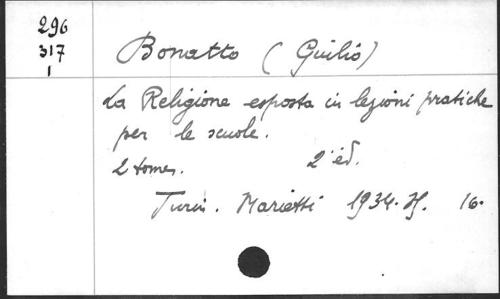 296
317
1
Bonatto (Guilio)
La Religione esposta in lezioni pratiche
per le scuole.
2 tomes. 2'éd.
Turin. Marietti 1934-35. 16.